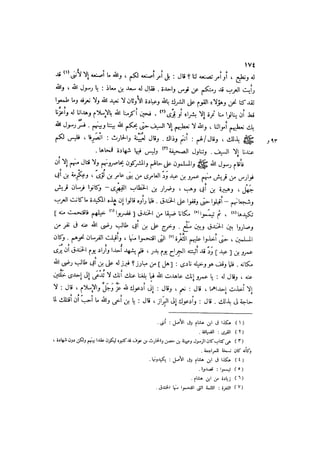 ١٧٤
له ونطيع ، أو أمر تصنعه لنا ؟ قال : بل أمر أصنعه لكم ، والله ما أصنعه إلا لأنى (١) قد
رأيت العرب قد رمتكم عن قوس واحدة . فقال له سعد بن معاذ : يا رسول الله ، والله
لقد كنا نحن وهؤلاء القوم على الشرك بالله وعبادة الأوثان لا نعبد الله ولا نعرفه وما طمعوا
قط أن ينالوا منا تمرة إلا بشراء أو قرى (٢) . فحين أكرمنا الله بالإسلام وهدانا له وأعزنا
بك نعطيهم أموالنا ، والله لا نعطيهم إلا السيف حتى يحكم الله بيننا وبينهم . فسر رسول الله
ﷺ بذلك ، وقال : أنتم وذاك . وقال لعيينة والحارث : انصرفا ، فليس لكم
٩٣ ر
عندنا إلا السيف . وتناول الصحيفة (٣) وليس فيها شهادة فمحاها .
فأقام رسول الله ﷺ والمسلمون على حالهم والمشركون يحاصرونهم ولا قتال منهم إلا أن
فوارس من قريش منهم عمرو بن عبد ود العامرى من بنى عامر بن لؤى ، وعكرمة بن أبى
جهل ، وهبيرة بن أبى وهب ، وضرار بن الخطاب الفهرى — وكانوا فرسان قريش
وشجعانهم — أقبلوا حتى وقفوا على الخندق . فلما رأوه قالوا إن هذه المكيدة ما كانت العرب
تكيدها (٤) ، ثم تيمموا (٥) مكانا ضيقا من الخندق ، فضربوا (٦) خيلهم فاقتحمت منه
وصاروا بين الخندق وبين سلع . وخرج على بن أبى طالب رضى الله عنه فى نفر من
المسلمين ، حتى أخذوا عليهم الثغرة (٧) التى اقتحموا منها ، وأقبلت الفرسان نحوهم . وكان
عمرو بن [ عبد ] ود قد أثبتته الجراح يوم بدر ، فلم يشهد أحدا وأراد يوم الخندق أن يرى
مكانه . فلما وقف هو وخيله نادى : [ هل ] من مبارز ؟ فبرز له على بن أبى طالب رضى الله
عنه ، وقال له : يا عمرو إنك عاهدت الله فيما بلغنا عنك أنك لا تدعى إلى إحدى خلتين
إلا أخذت إحداهما ، قال : نعم ، وقال : إنى أدعوك لله عز وجل والإسلام ، قال : لا
حاجة لى بذلك . قال : وأدعوك إلى البراز ، قال : يا بن أخى والله ما أحب أن أقتلك لما
(١) هكذا فى ابن هشام وفى الأصل : أنى .
(٢) القرى : الضيافة .
(٣) هى كتاب كان الرسول وعيينة بن حصن والحارث بن عوف قد كتبوه ليكون عقدا بينهم ولكن دون شهادة ،
وكأنه كان نسخة للمراجعة .
(٤) هكذا فى ابن هشام وفى الأصل : يكيدونها .
(٥) تيمموا : قصدوا .
(٦) زيادة من ابن هشام .
(٧) الثغرة : الثلمة التى اقتحموا منها الخندق .